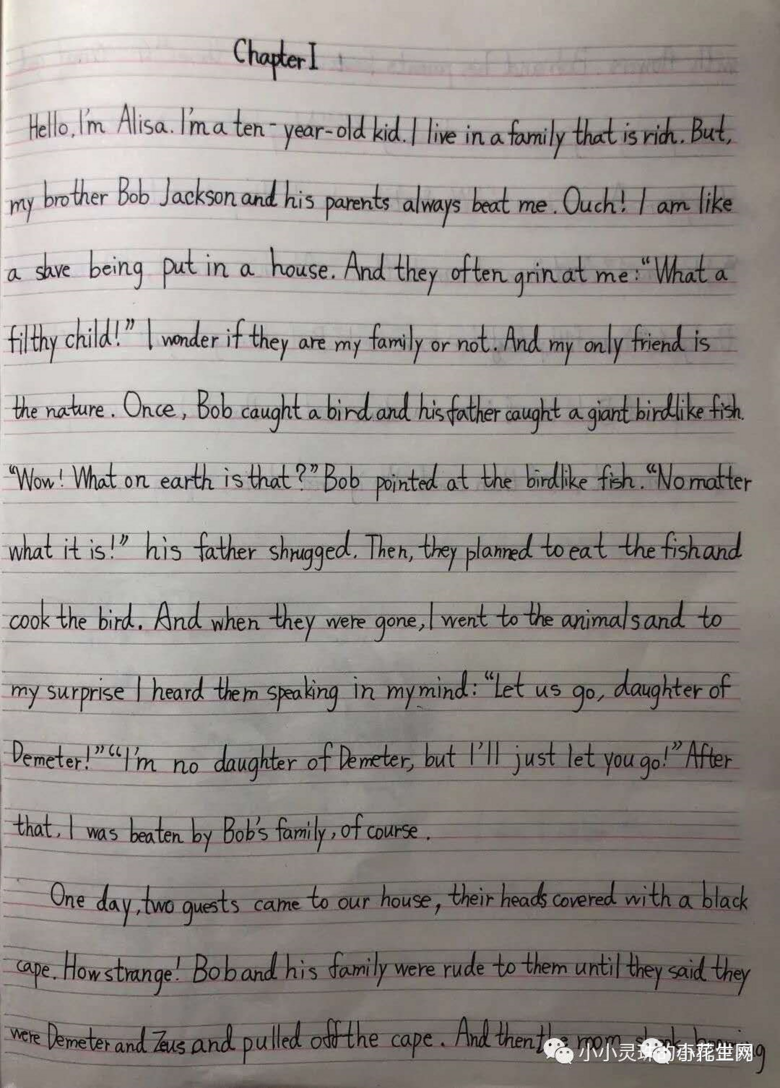 Chapter I
Hello, I'm Alisa. I'm a ten-year-old kid. I live in a family that is rich. But,
my brother Bob Jackson and his parents always beat me. Ouch! I am like
a slave being put in a house. And they often grin at me: "What a
filthy child!" I wonder if they are my family or not. And my only friend is
the nature. Once, Bob caught a bird and his father caught a giant birdlike fish.
"Wow! What on earth is that?" Bob pointed at the birdlike fish. "No matter
what it is!" his father shrugged. Then, they planned to eat the fish and
cook the bird. And when they were gone, I went to the animals and to
my surprise I heard them speaking in my mind: "Let us go, daughter of
Demeter!" "I'm no daughter of Demeter, but I'll just let you go!" After
that, I was beaten by Bob's family, of course.
One day, two guests came to our house, their heads covered with a black
cape. How strange! Bob and his family were rude to them until they said they
were Demeter and Zeus and pulled off the cape. And then the mom
小小灵 的 小花生网